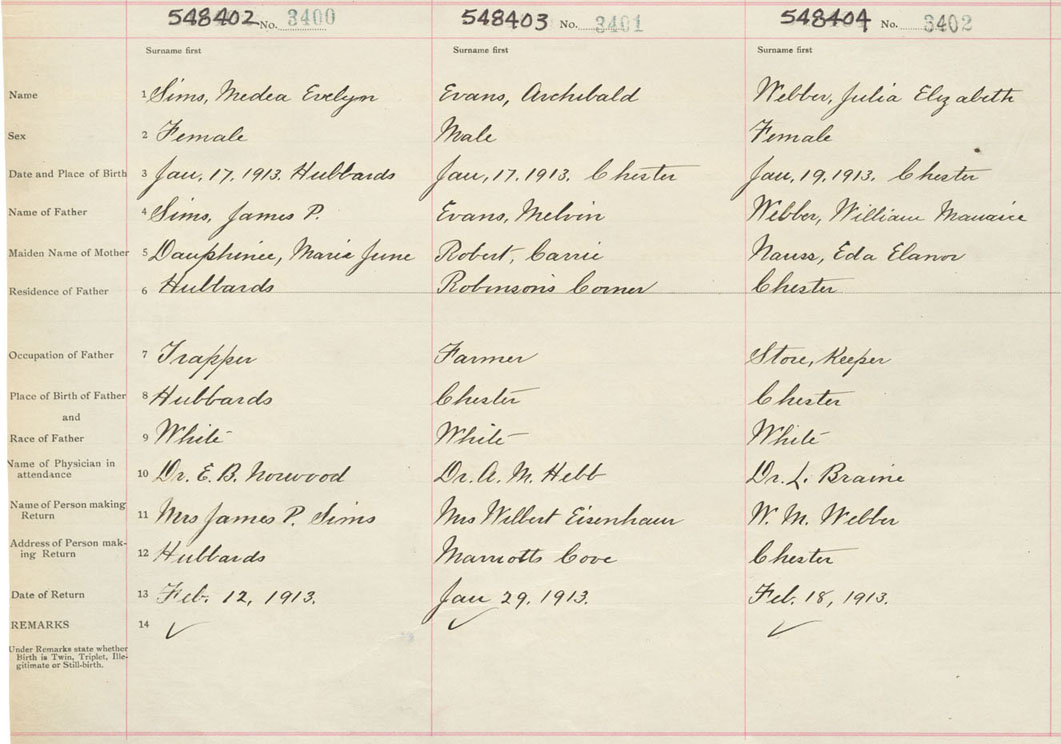 548402 No. 3400 548403 No. 3401 548404 No. 3402
Surname first Surname first Surname first
Name 1 Sims, Medea Evelyn Evans, Archibald Webber, Julia Elizabeth
Sex 2 Female Male Female
Date and Place of Birth 3 Jan, 17, 1913. Hubbards Jan, 17, 1913. Chester Jan, 19, 1913. Chester
Name of Father 4 Sims, James P. Evans, Melvin Webber, William Manaire
Maiden Name of Mother 5 Dauphinee, Maria June Robert, Carrie Nauss, Eda Elanor
Residence of Father 6 Hubbards Robinson's Corner Chester
Occupation of Father 7 Trapper Farmer Store, Keeper
Place of Birth of Father 8 Hubbards Chester Chester
and
Race of Father 9 White White White
Name of Physician in
attendance 10 Dr. E. B. Norwood Dr. A. M. Hebb Dr. L. Braine
Name of Person making
Return 11 Mrs James P. Sims Mrs Wilbert Eisenhaur W. M. Webber
Address of Person mak-
ing Return 12 Hubbards Marriotts Cove Chester
Date of Return 13 Feb. 12, 1913. Jan 29. 1913. Feb. 18, 1913.
REMARKS 14 ✓ ✓ ✓
Under Remarks state whether
Birth is Twin, Triplet, Ille-
gitimate or Still-birth.